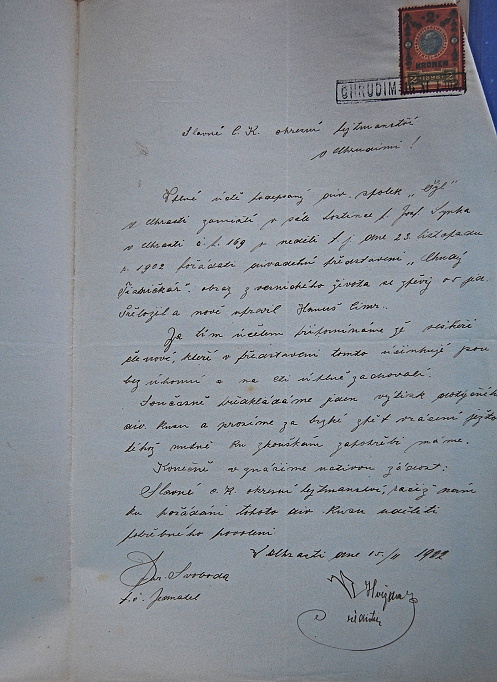 2
KRONEN
2 1898 2
CHRUDIM
Slavné C. K. okresní hejtmanství
v Chrudimi!
Uctivě níže podepsaný div. spolek „Tyl"
v Chrasti zamýšlí v sále hostince p. Josf. Synka
v Chrasti č. p. 169 v neděli t. j. dne 23. listopadu
r. 1902 pořádati divadelní představení „Chudý
Písničkář" obraz z vesnického života se zpěvy o 5 jed.
Přeložil a nově upravil Hanuš
Za tím účelem připomínáme že veškeří
členové, kteří v představení tomto účinkují jsou
bezúhonní a na cti úplně zachovalí.
Současně předkládáme jeden výtisk dotyčného
div. kusu a prosíme za brzké zpět vrácení ježto
téhož nutně ku zkouškám zapotřebí máme.
Konečně vznášíme uctivou žádost:
Slavné c. k. okresní hejtmanství, račiž nám
ku pořádání tohoto div. kusu uděliti
potřebného povolení
V Chrasti dne 15/11 1902
Svoboda
t. č. jednatel
ředitel